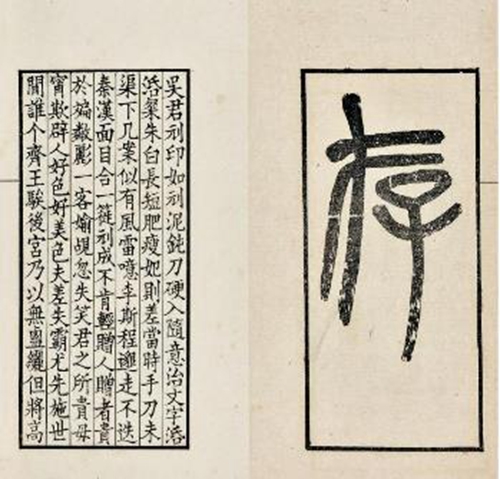 存
吳君刻印如刻泥鈍刀硬入隨意治文字活
活粲朱白長短肥瘦妃則差當時手刀未
渠下几案似有風雷噫李斯程邈走不迭
秦漢面目合一徙刻成不肯輕贈人贈者貴
於媥麗一客媮覷忽失笑君之所貴毋
甯欺辟人好色好美色夫差失霸尤先施世
閒誰个齊王騃後宮乃以無鹽纚但將高